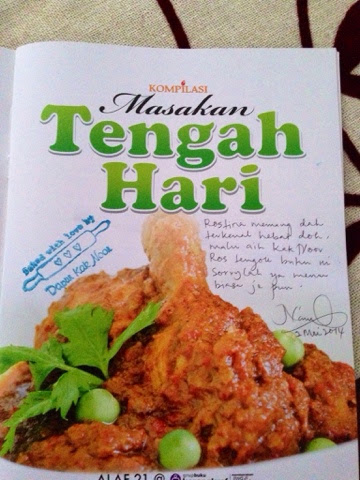 KOMPILASI
Masakan
Tengah
Hari
Rostina memang dah
terkenal hebat doh,
malu aih Kak Noor
Ros tengok buku ni
Sorrylah ya menu
biasa je pun.
2 Mei 2014
Baked with love by
Dapur Kak Noor
ALAF 21 @